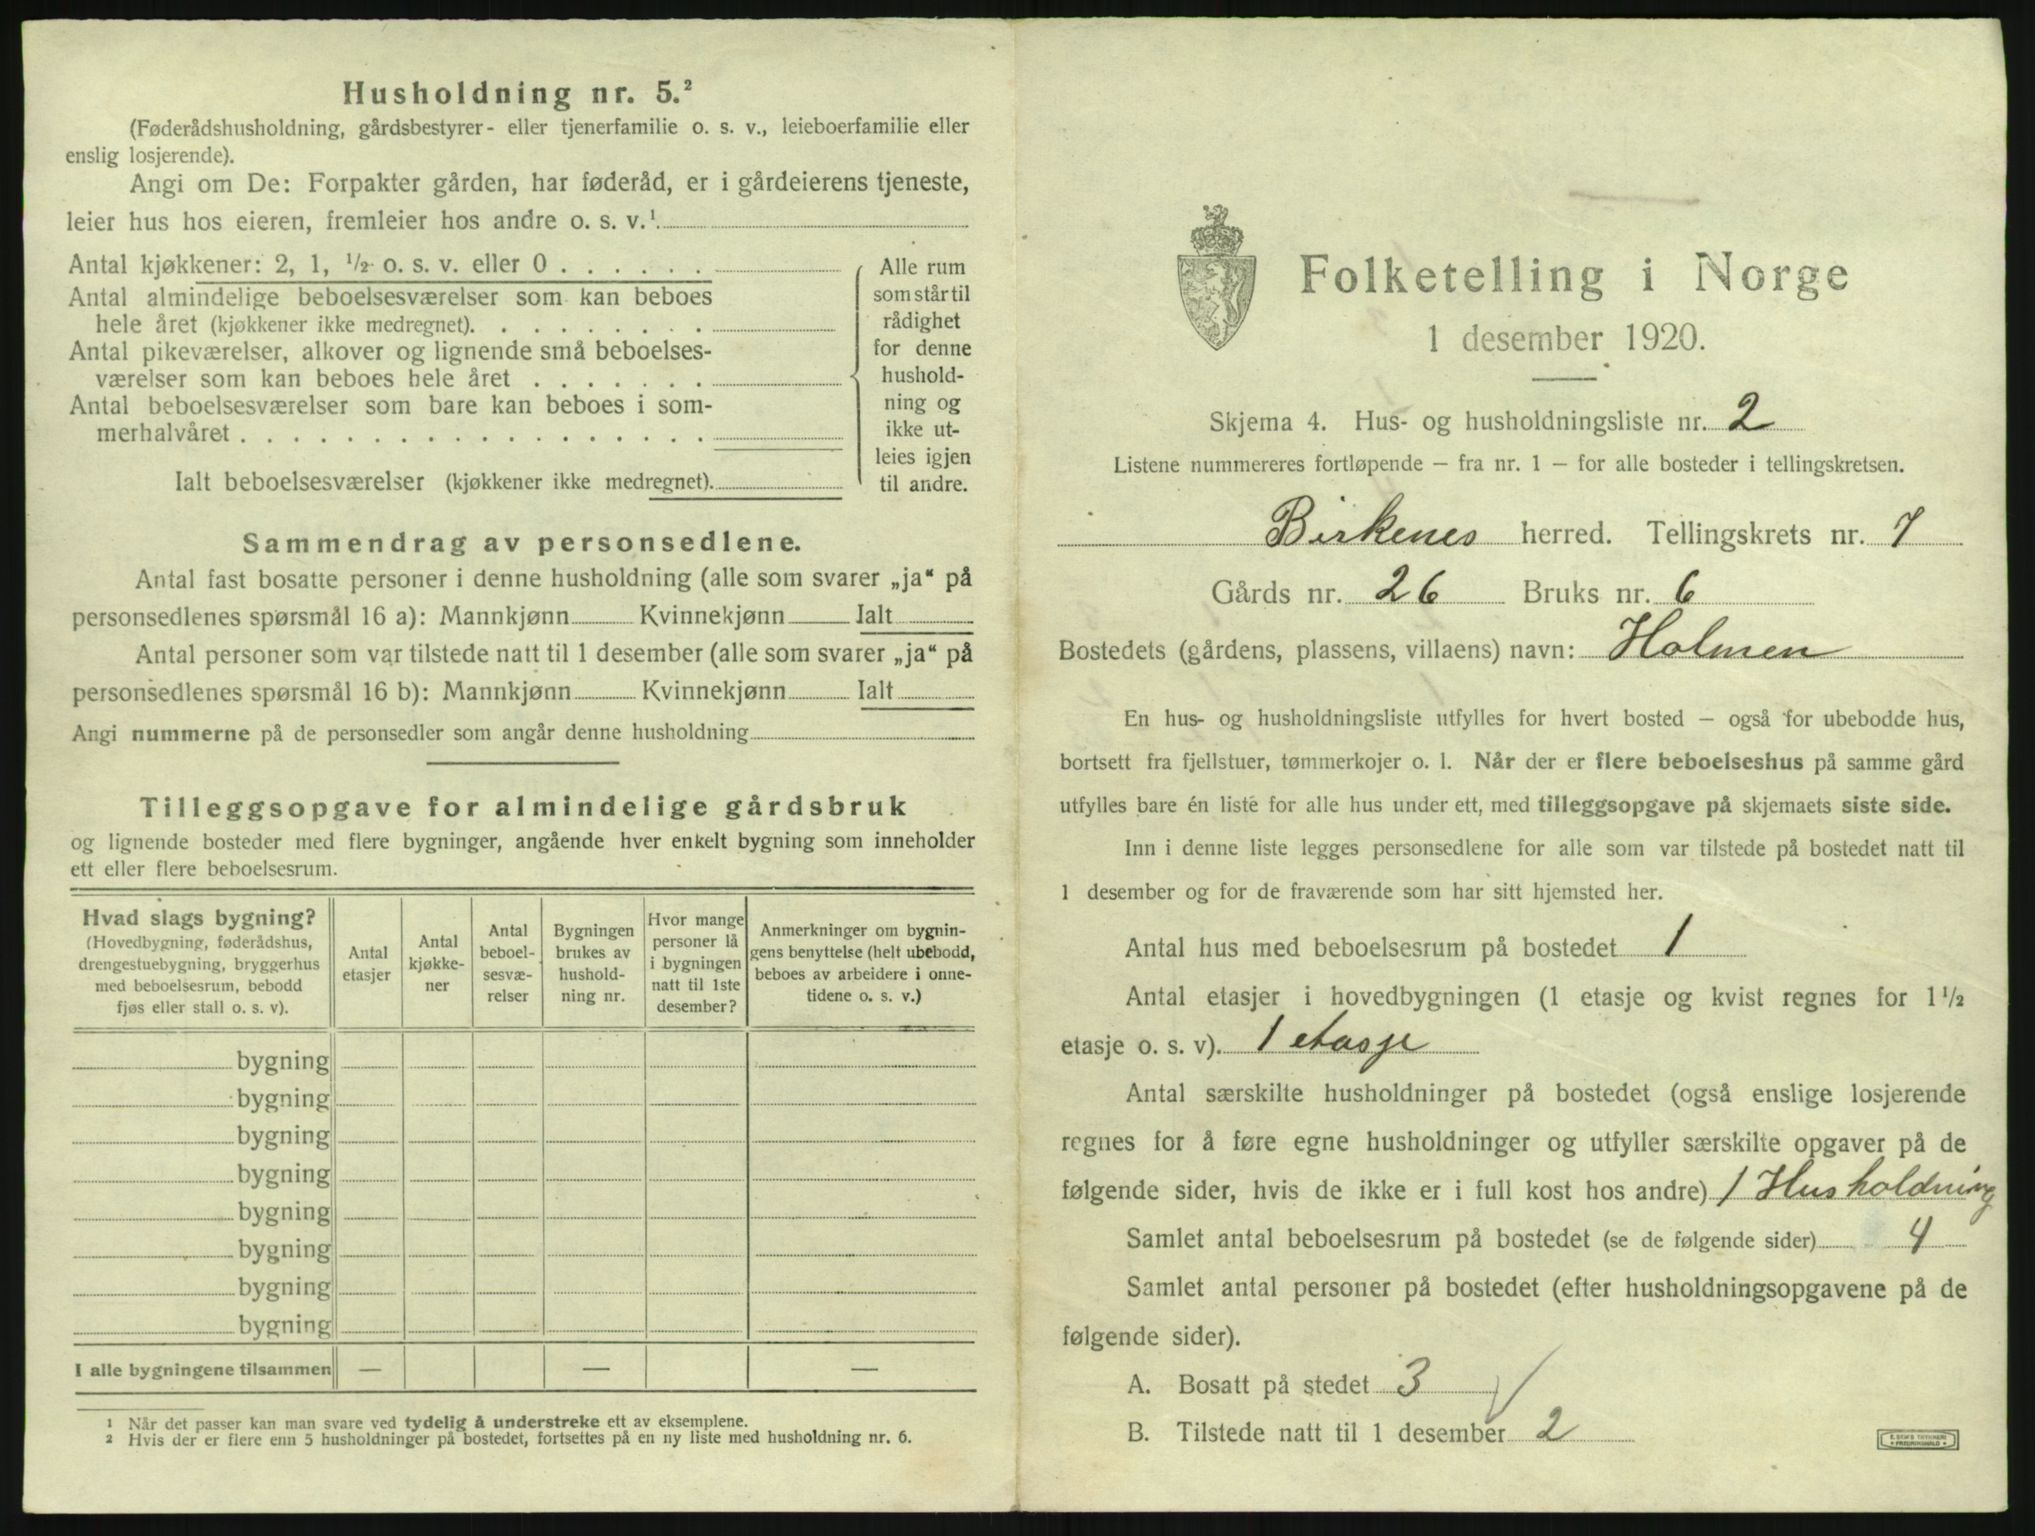 Husholdning nr. 5.²
(Føderådshusholdning, gårdsbestyrer- eller tjenerfamilie o. s. v., leieboerfamilie eller
enslig losjerende).
Angi om De: Forpakter gården, har føderåd, er i gårdeierens tjeneste,
leier hus hos eieren, fremleier hos andre o. s. v.¹
Antal kjøkkener: 2, 1, ½ o. s. v. eller 0 . . . . . .
Antal almindelige beboelsesværelser som kan beboes
hele året (kjøkkener ikke medregnet). . . . . . . . .
Antal pikeværelser, alkover og lignende små beboelses-
værelser som kan beboes hele året . . . . . . .
Antal beboelsesværelser som bare kan beboes i som-
merhalvåret . . . . . . . . . . . . . . . . . .
Ialt beboelsesværelser (kjøkkener ikke medregnet).
Alle rum
som står til
rådighet
for denne
hushold-
ning og
ikke ut-
leies igjen
til andre.
Sammendrag av personsedlene.
Antal fast bosatte personer i denne husholdning (alle som svarer „ja“ på
personsedlenes spørsmål 16 a): Mannkjønn Kvinnekjønn Ialt
Antal personer som var tilstede natt til 1 desember (alle som svarer „ja“ på
personsedlenes spørsmål 16 b): Mannkjønn Kvinnekjønn Ialt
Angi nummerne på de personsedler som angår denne husholdning
Tilleggsopgave for almindelige gårdsbruk
og lignende bosteder med flere bygninger, angående hver enkelt bygning som inneholder
ett eller flere beboelsesrum.
Hvad slags bygning?
(Hovedbygning, føderådshus,
drengestuebygning, bryggerhus
med beboelsesrum, bebodd
fjøs eller stall o. s. v).
Antal
etasjer
Antal
kjøkke-
ner
Antal
beboel-
sesvæ-
relser
Bygningen
brukes av
hushold-
ning nr.
Hvor mange
personer lå
i bygningen
natt til 1ste
desember?
Anmerkninger om bygnin-
gens benyttelse (helt ubebodd,
beboes av arbeidere i onne-
tidene o. s. v.)
bygning
bygning
bygning
bygning
bygning
bygning
bygning
bygning
I alle bygningene tilsammen — — —
¹ Når det passer kan man svare ved tydelig å understreke ett av eksemplene.
² Hvis der er flere enn 5 husholdninger på bostedet, fortsettes på en ny liste med husholdning nr. 6.
Folketelling i Norge
1 desember 1920.
Skjema 4. Hus- og husholdningsliste nr. 2
Listene nummereres fortløpende – fra nr. 1 – for alle bosteder i tellingskretsen.
Birkenes herred. Tellingskrets nr. 7
Gårds nr. 26 Bruks nr. 6
Bostedets (gårdens, plassens, villaens) navn: Holmen
En hus- og husholdningsliste utfylles for hvert bosted – også for ubebodde hus,
bortsett fra fjellstuer, tømmerkojer o. l. Når der er flere beboelseshus på samme gård
utfylles bare én liste for alle hus under ett, med tilleggsopgave på skjemaets siste side.
Inn i denne liste legges personsedlene for alle som var tilstede på bostedet natt til
1 desember og for de fraværende som har sitt hjemsted her.
Antal hus med beboelsesrum på bostedet 1
Antal etasjer i hovedbygningen (1 etasje og kvist regnes for 1½
etasje o. s. v). 1 etasje
Antal særskilte husholdninger på bostedet (også enslige losjerende
regnes for å føre egne husholdninger og utfyller særskilte opgaver på de
følgende sider, hvis de ikke er i full kost hos andre) 1 Husholdning
Samlet antal beboelsesrum på bostedet (se de følgende sider) 4
Samlet antal personer på bostedet (efter husholdningsopgavene på de
følgende sider).
A. Bosatt på stedet 3
B. Tilstede natt til 1 desember 2